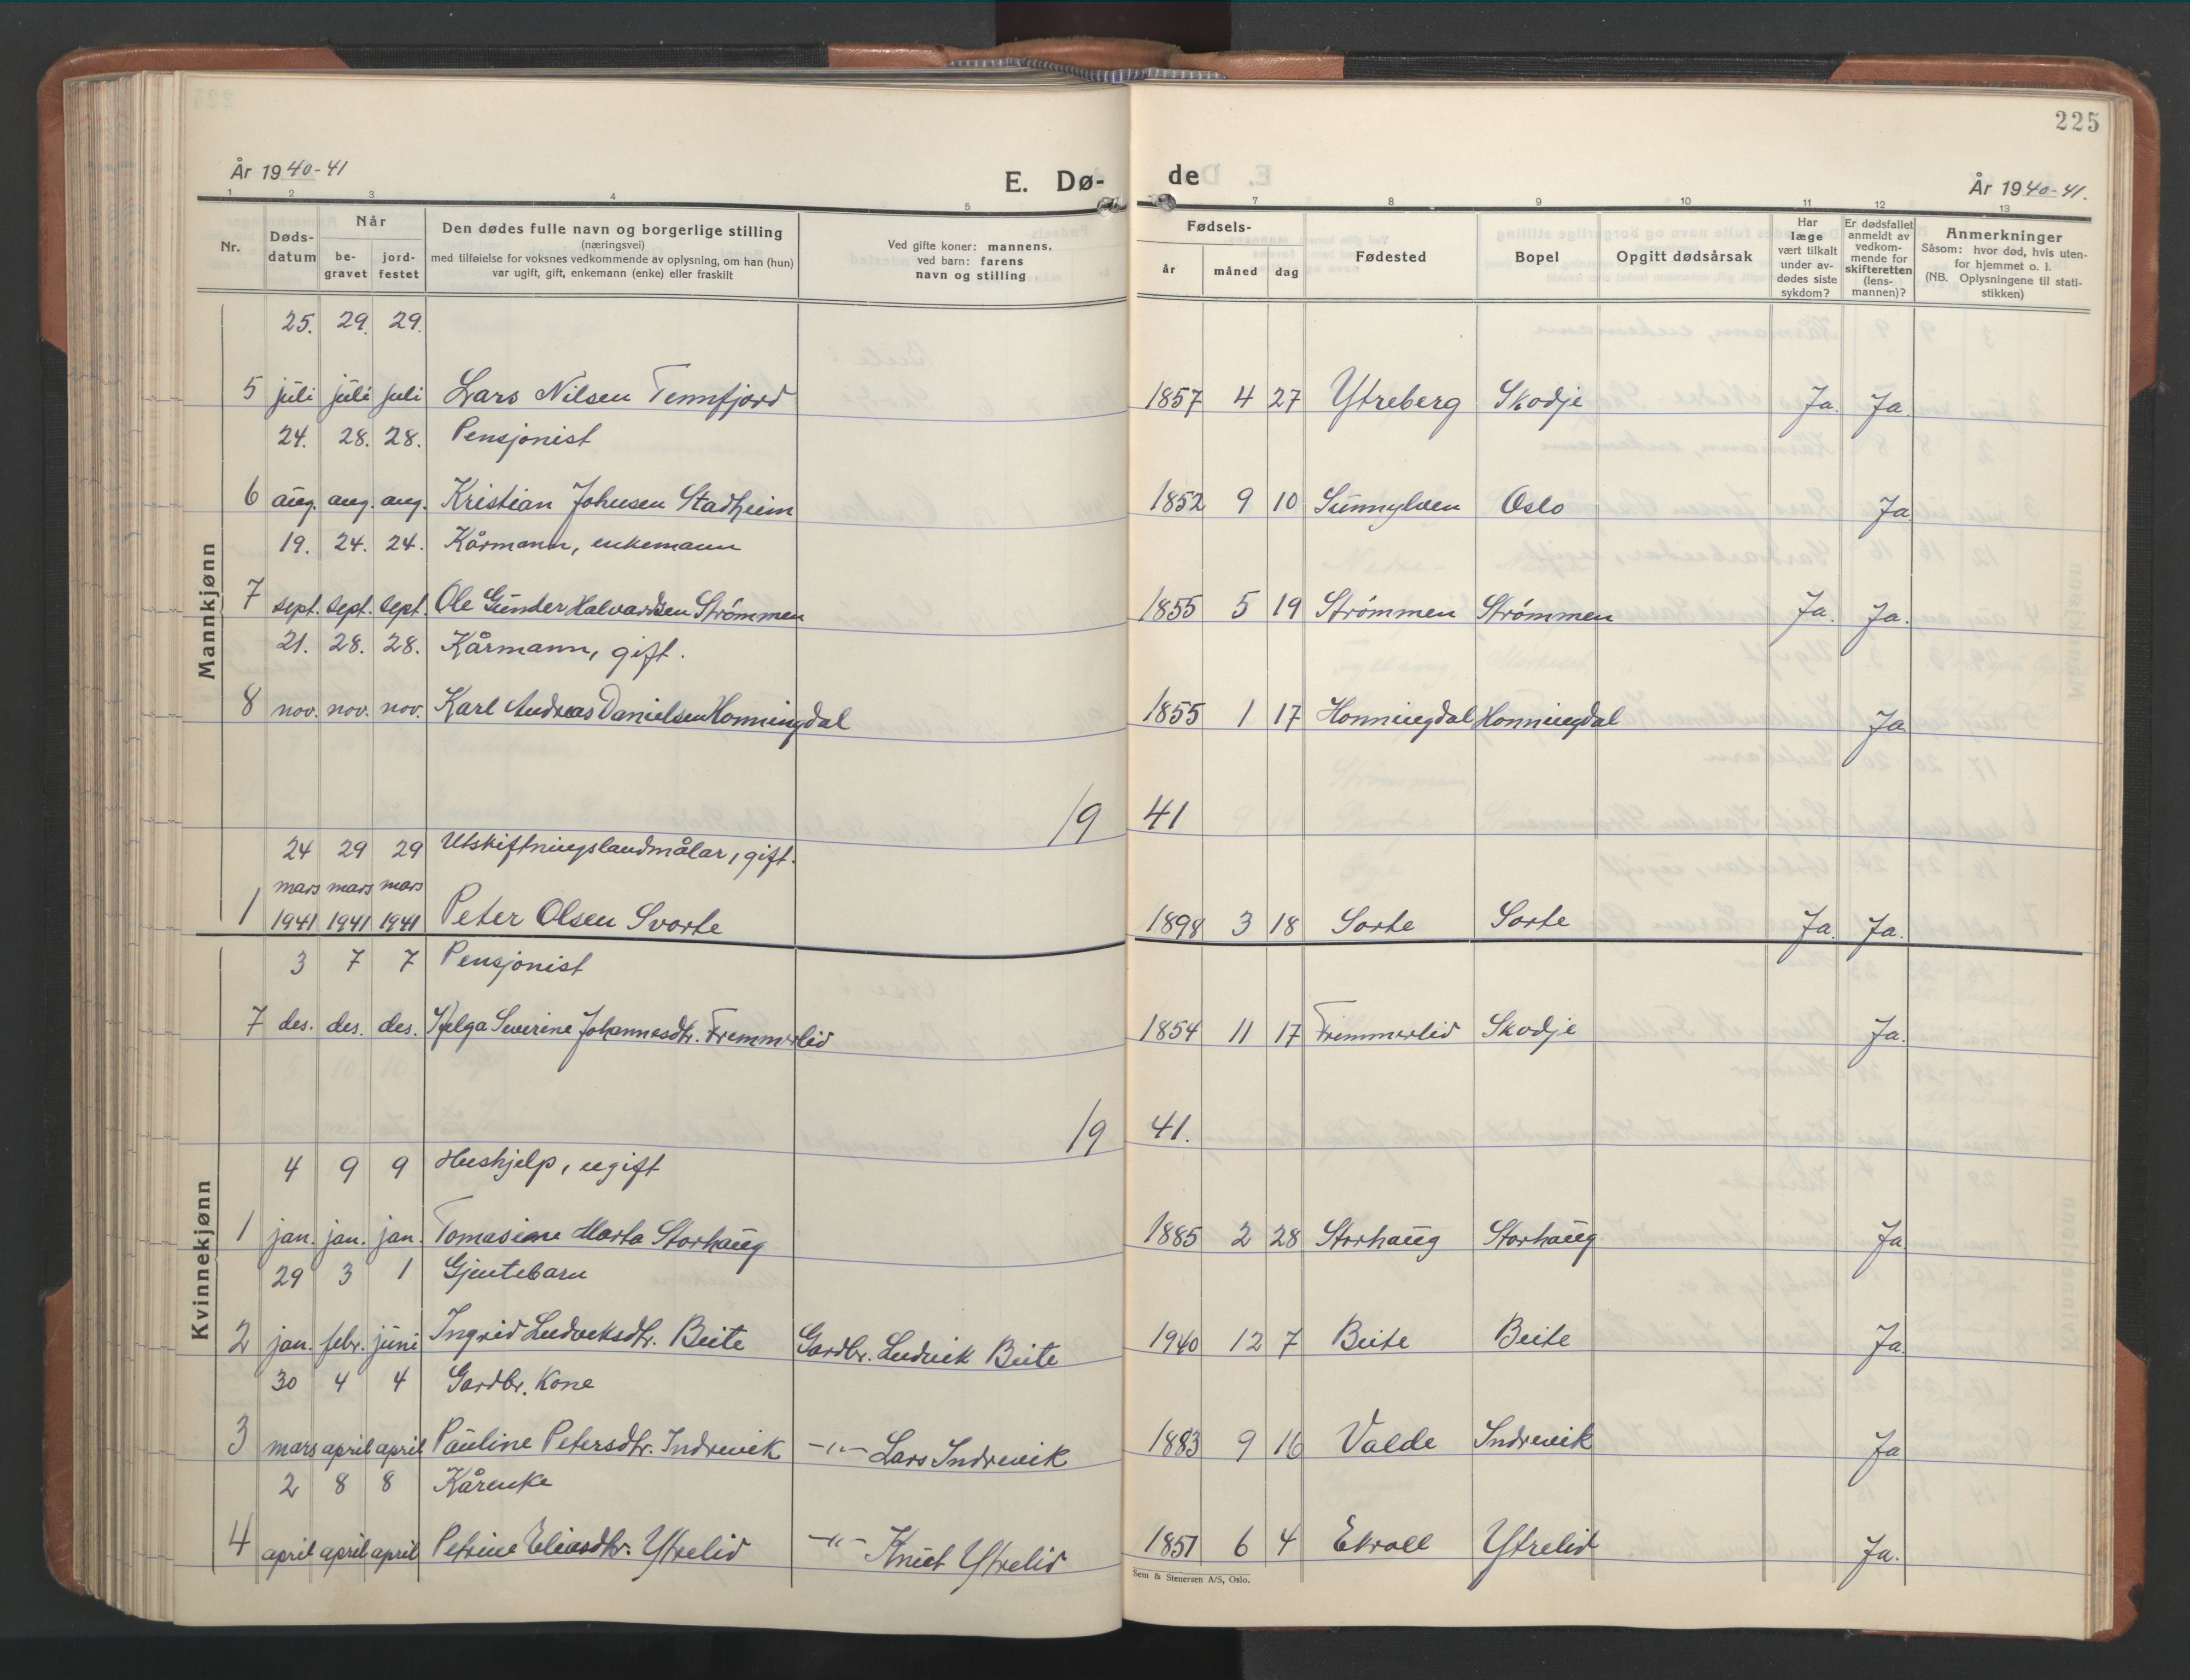 225
År 1940-41
E. Dø-
de
År 1940-41.
1 2 3 4 5
7 8 9 10 11 12 13
Nr.
Døds-
datum
Når
be-
gravet
jord-
festet
Den dødes fulle navn og borgerlige stilling
(næringsvei)
med tilføielse for voksnes vedkommende av oplysning, om han (hun)
var ugift, gift, enkemann (enke) eller fraskilt
Ved gifte koner: mannens,
ved barn: farens
navn og stilling
Fødsels-
år måned dag
Fødested
Bopel
Opgitt dødsårsak
Har
læge
vært tilkalt
under av-
dødes siste
sykdom?
Er dødsfallet
anmeldt av
vedkom-
mende for
skifteretten
(lens-
mannen)?
Anmerkninger
Såsom: hvor død, hvis uten-
for hjemmet o. l.
(NB. Oplysningene til stati-
stikken)
Mannkjønn
25. 29. 29.
5 juli juli juli Lars Nilsen Tennfjord 1857 4 27 Ytreberg Skodje Ja. Ja.
24. 28. 28. Pensjonist
6 aug. aug. aug. Kristian Johnsen Stadheim 1852 9 10 Sunnylven Oslo Ja.
19. 24. 24. Kårmann, enkemann
7 sept. sept. sept. Ole Gunder Halvardsen Strömmen 1855 5 19 Strömmen Strömmen Ja. Ja.
21. 28. 28. Kårmann, gift.
8 nov. nov. nov. Karl Andreas Danielsen Honningdal 1855 1 17 Honningdal Honningdal Ja.
19 41
24 29 29 Utskiftningslandmålar, gift.
mars mars mars
1 1941 1941 1941 Peter Olsen Svorte 1898 3 18 Sorte Sorte Ja. Ja.
Kvinnekjønn
3 7 7 Pensjonist
7 des. des. des. Helga Severine Johannesdtr. Fremmerlid 1854 11 17 Fremmerlid Skodje Ja.
19 41.
4 9 9 Hushjelp, ugift
1 jan. jan. jan. Tomasine Marta Storhaug 1885 2 28 Storhaug Storhaug Ja.
29 3 1 Gjentebarn
2 jan. febr. juni Ingrid Ludviksdtr. Beite Gardbr. Ludvik Beite 1940 12 7 Beite Beite Ja.
30 4 4 Gardbr. Kone
3 mars april april Pauline Petersdtr. Indrevik -"- Lars Indrevik 1883 9 16 Valde Indrevik Ja
2 8 8 Kårenke
4 april april april Petrine Eliasdtr. Ytrelid -"- Knut Ytrelid 1851 6 4 Ekroll Ytrelid Ja.
Sem & Stenersen A/S, Oslo.